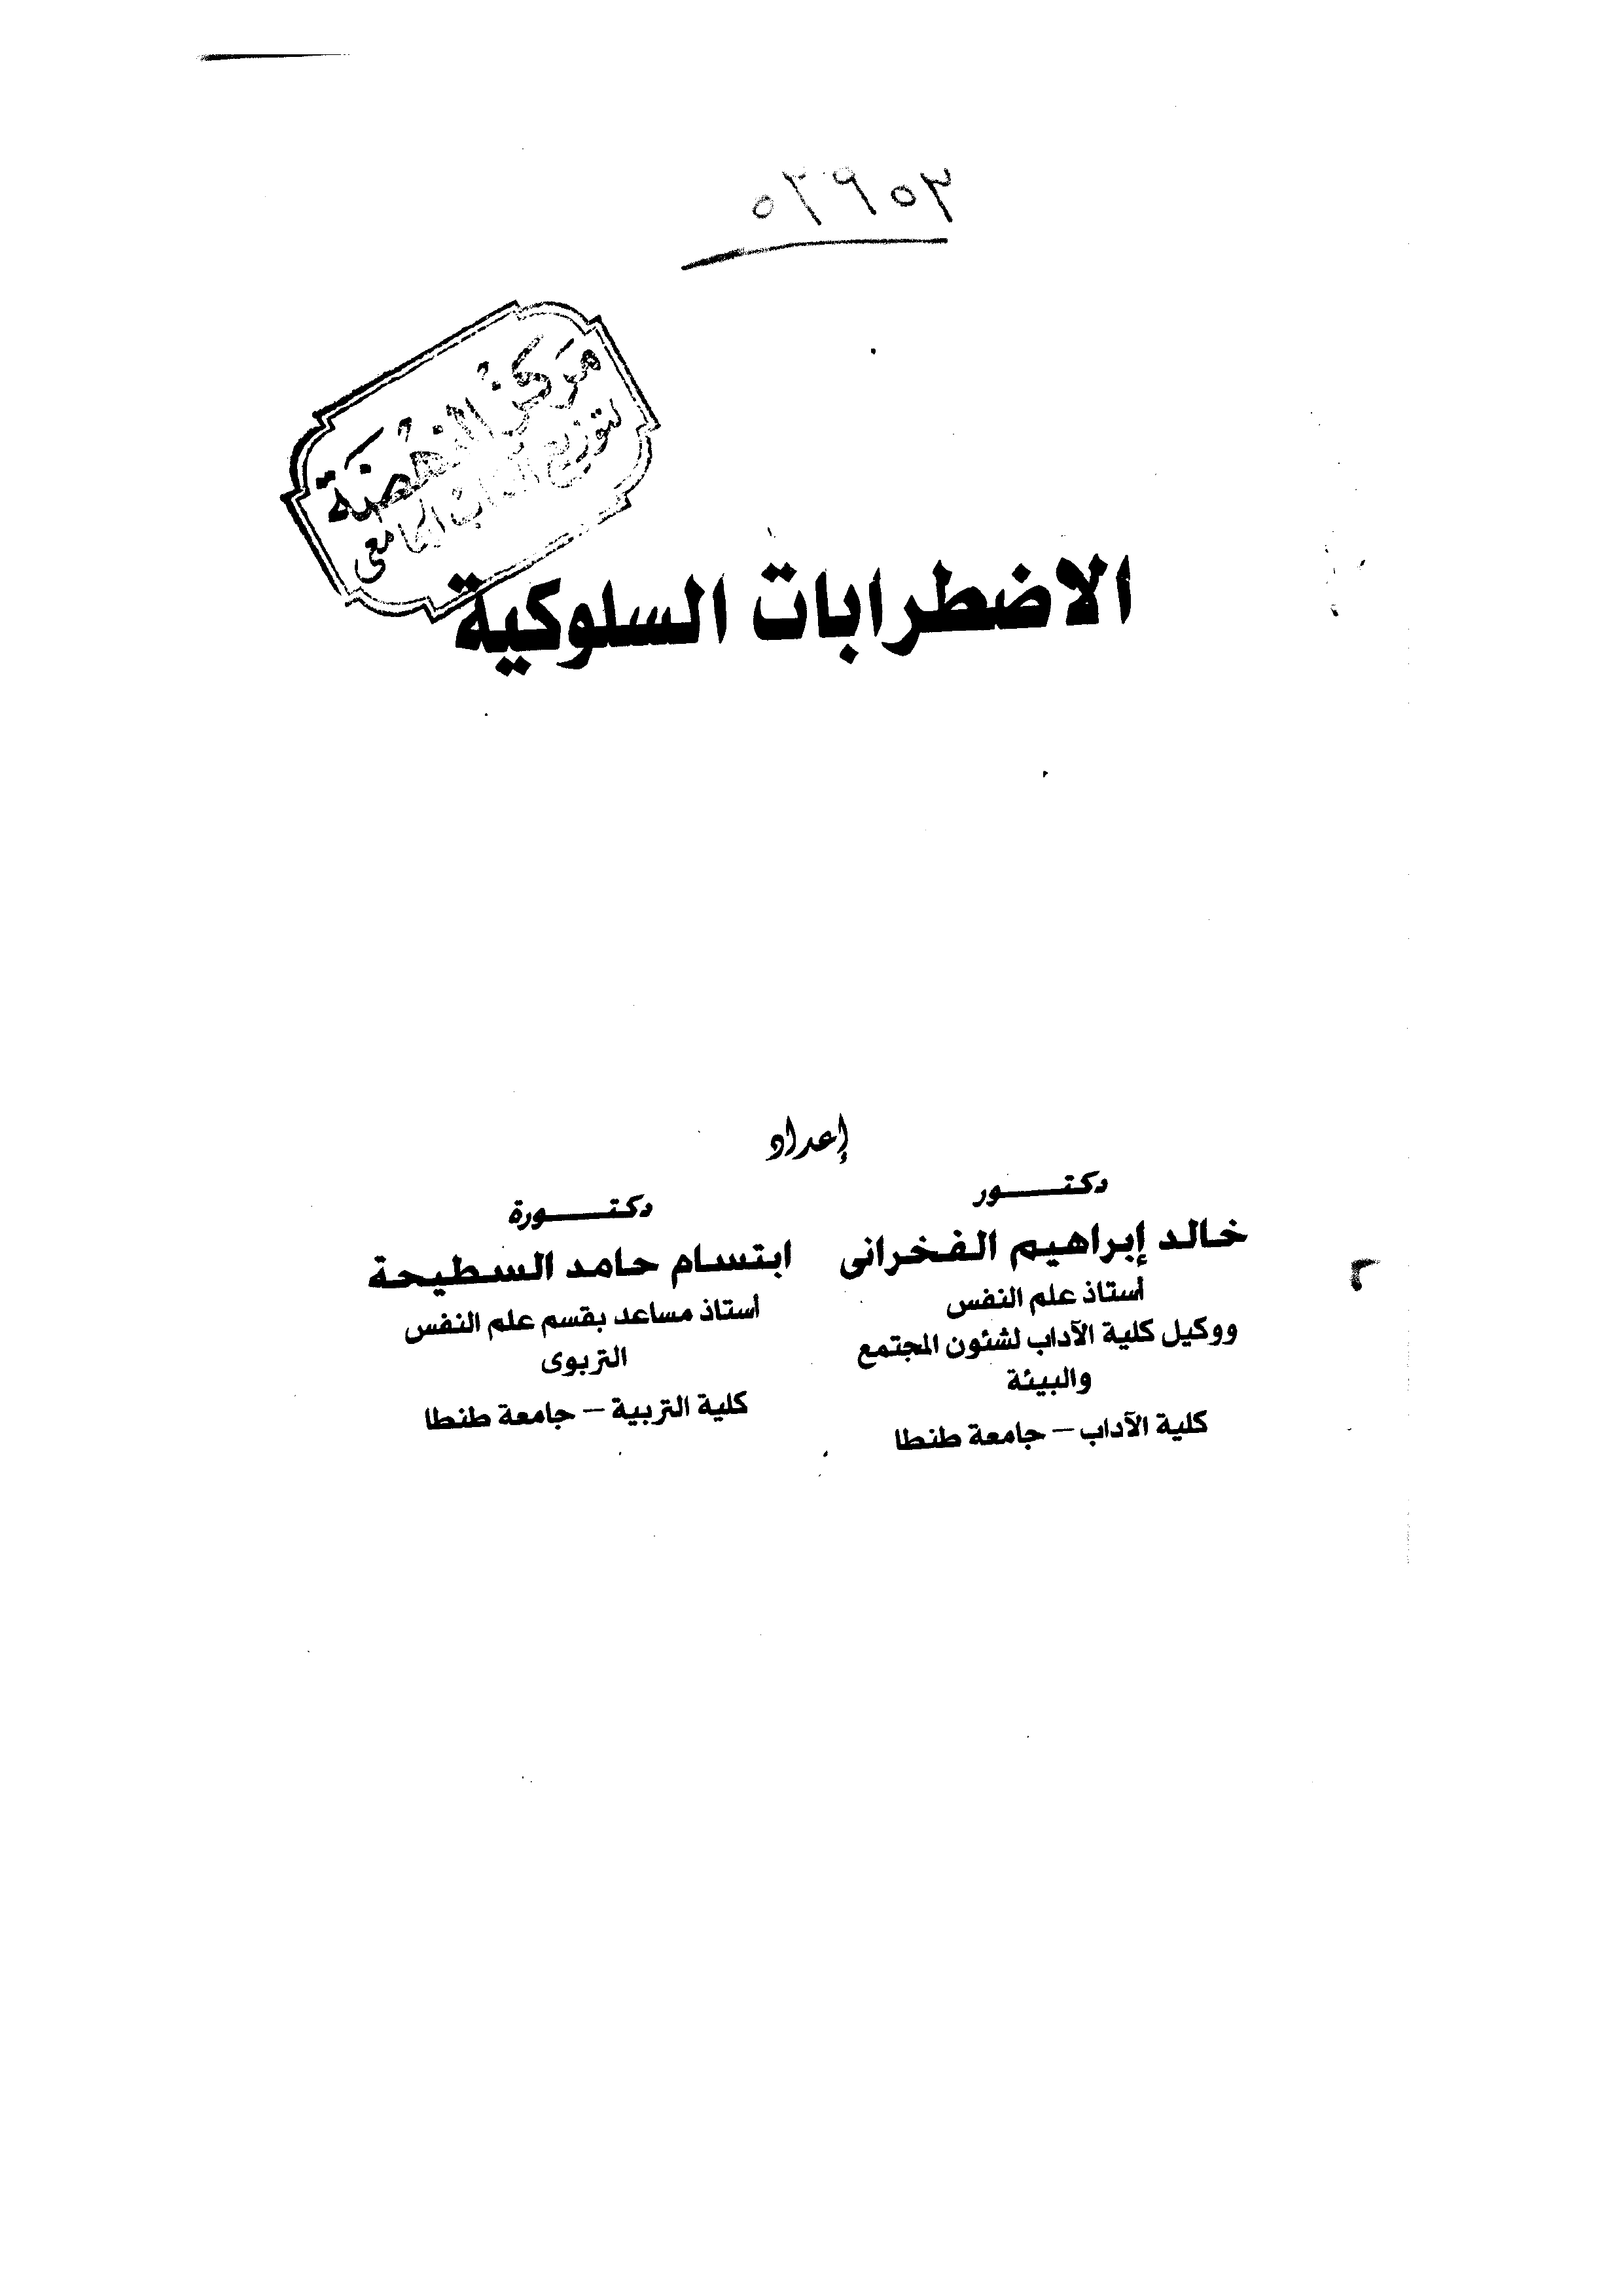 ٥٢٩٥٣
مركز النهضة
لتوزيع الكتاب الجامعى
الاضطرابات السلوكية
إعداد
دكتـــــــور
خالد إبراهيم الفخرانى
أستاذ علم النفس
ووكيل كلية الآداب لشئون المجتمع
والبيئة
كلية الآداب – جامعة طنطا
دكتـــــــورة
ابتسام حامد السطيحة
أستاذ مساعد بقسم علم النفس
التربوى
كلية التربية – جامعة طنطا